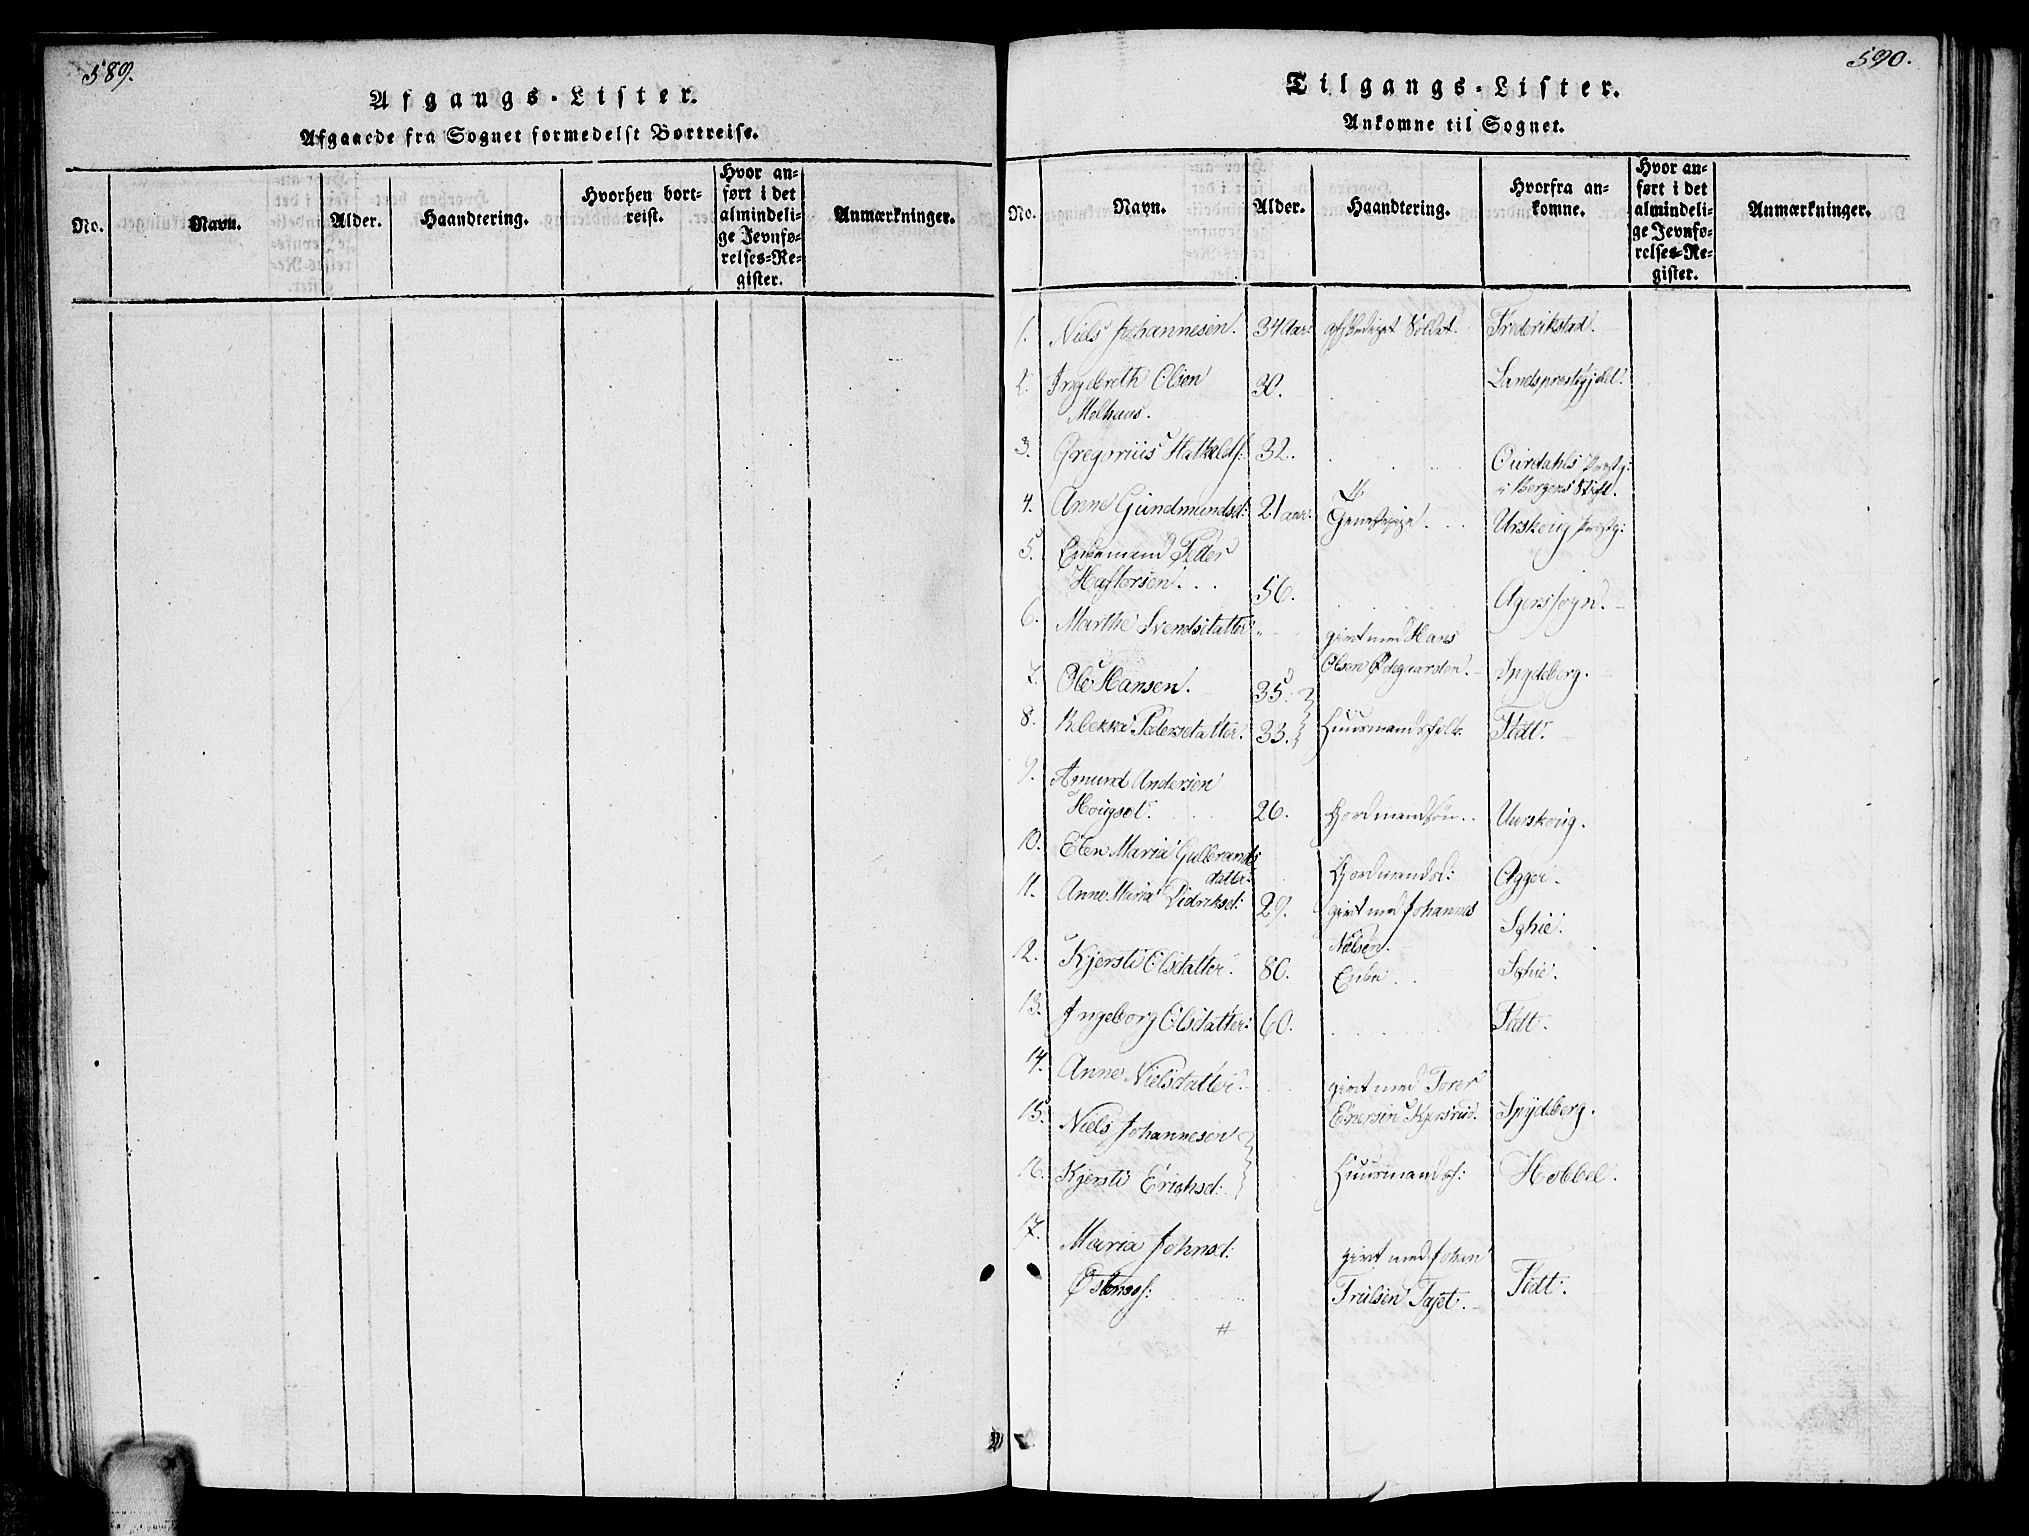 589.
Afgangs-Lister.
Afgaaede fra Sognet formedelst Bortreise.
No.
Navn.
Alder.
Haandtering.
Hvorhen bort-
reist.
Hvor an-
ført i det
almindeli-
ge Jevnfø-
relses-Re-
gister.
Anmærkninger.
590.
Tilgangs-Lister.
Ankomne til Sognet.
No.
Navn.
Alder.
Haandtering.
Hvorfra an-
komne.
Hvor an-
ført i det
almindeli-
ge Jevnfø-
relses-Re-
gister.
Anmærkninger.
1. Niels Johannesen. 34 aar. afskediget Soldat. Frederikstad.
2. Ingebreth Olsen 30. Landspræstegjeld.
Melhuus.
3. Gregorius 32. Præstg:
i Bergens Stift.
4. Anne Gundmundsd: 21 aar. Tjenestepige. Urskoug Præstg:
5. Enkemand Peder
Haftorsen. 56. Agers sogn.
6. Marthe Svendsdatter „ givt med Hans
Olsen Ødegaarden. Spydeberg.
7. Ole Hansen. 35.
8. Rebekka Pedersdatter. 33. Huusmandsfolk. Tødt.
9. Amund Andersen
Hougset. 26. Gordmandsøn. Uurskoug.
10. Elen Maria Gulbrands
datter. Gordmandsd: Agger.
11. Anne Maria Didriksd: 29. givt med Johannes
Nielsen. Schie.
12. Kjersti Olsdatter. 80. Enke. Schie.
13. Ingeborg Olsdatter. 60. Tødt.
14. Anne Nielsdatter. givt med Torer
Enersen Kjersrud. Spydeberg.
15. Niels Johannesen
16. Kjersti Erichsd: Huusmandsf: Hobbel.
17. Maria Johnsd: givt med Johan
Østenss: Trulsen Taset. Tødt.
#